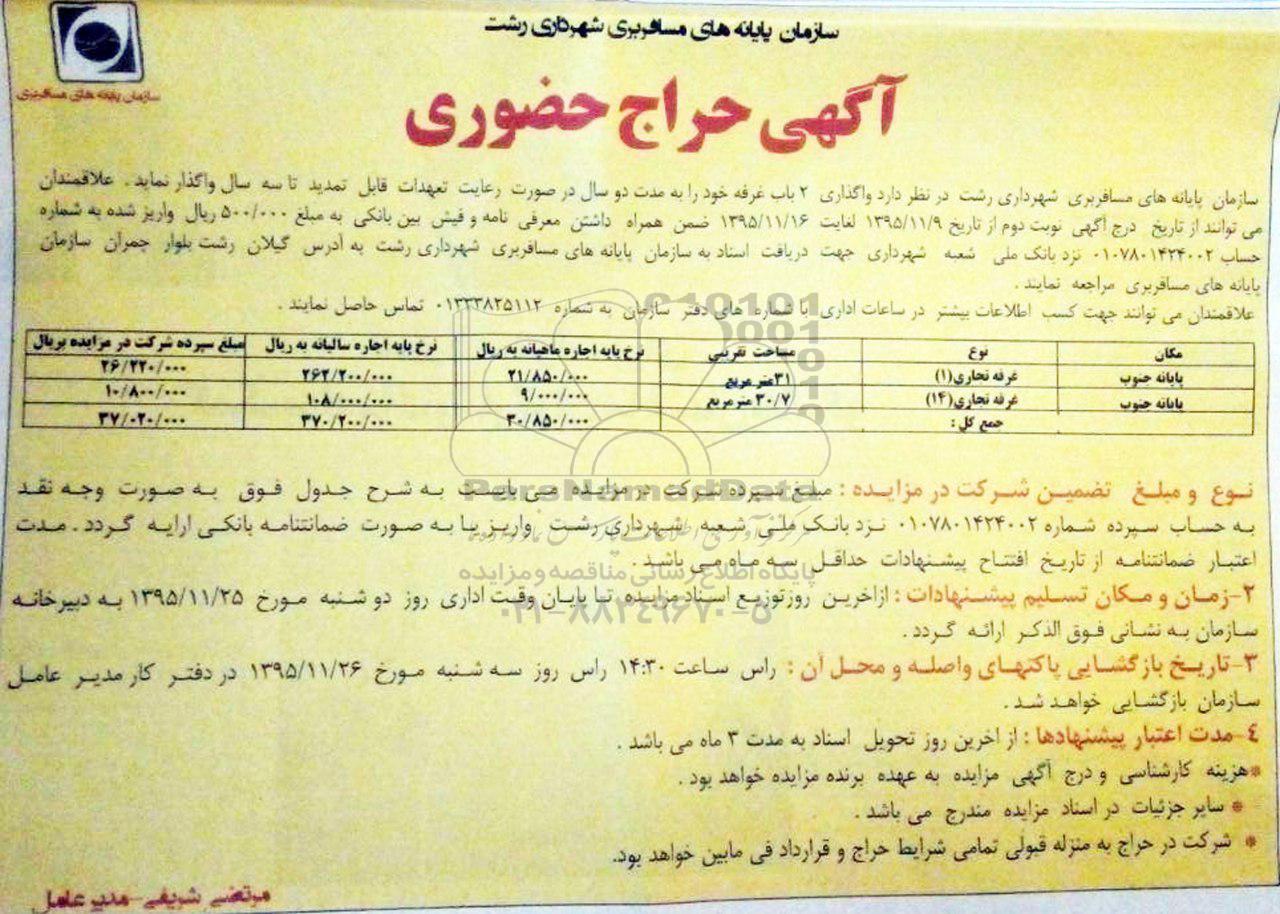 سازمان پایانه های مسافربری شهرداری رشت
سازمان پایانه های مسافربری
آگهی حراج حضوری
سازمان پایانه های مسافربری شهرداری رشت در نظر دارد واگذاری ۲ باب غرفه خود را به مدت دو سال در صورت رعایت تعهدات قابل تمدید تا سه سال واگذار نماید . علاقمندان
می توانند از تاریخ درج آگهی نوبت دوم از تاریخ ۱۳۹۵/۱۱/۹ لغایت ۱۳۹۵/۱۱/۱۶ ضمن همراه داشتن معرفی نامه و فیش بین بانکی به مبلغ ۵۰۰/۰۰۰ ریال واریز شده به شماره
حساب ۰۱۰۷۸۰۱۴۲۴۰۰۲ نزد بانک ملی شعبه شهرداری جهت دریافت اسناد به سازمان پایانه های مسافربری شهرداری رشت به آدرس گیلان رشت بلوار چمران سازمان
پایانه های مسافربری مراجعه نمایند .
علاقمندان می توانند جهت کسب اطلاعات بیشتر در ساعات اداری با شماره های دفتر سازمان به شماره ۰۱۳۳۳۸۲۵۱۱۲ تماس حاصل نمایند .
مکان نوع مساحت تقریبی نرخ پایه اجاره ماهیانه به ریال نرخ پایه اجاره سالیانه به ریال مبلغ سپرده شرکت در مزایده بریال
پایانه جنوب غرفه تجاری(۱) ۳۱متر مربع ۲۱/۸۵۰/۰۰۰ ۲۶۲/۲۰۰/۰۰۰ ۲۶/۲۲۰/۰۰۰
پایانه جنوب غرفه تجاری(۱۴) ۳۰/۷ متر مربع ۹/۰۰۰/۰۰۰ ۱۰۸/۰۰۰/۰۰۰ ۱۰/۸۰۰/۰۰۰
جمع کل : ۳۰/۸۵۰/۰۰۰ ۳۷۰/۲۰۰/۰۰۰ ۳۷/۰۲۰/۰۰۰
نوع و مبلغ تضمین شرکت در مزایده : مبلغ سپرده شرکت در مزایده می بایست به شرح جدول فوق به صورت وجه نقد
به حساب سپرده شماره ۰۱۰۷۸۰۱۴۲۴۰۰۲ نزد بانک ملی شعبه شهرداری رشت واریز یا به صورت ضمانتنامه بانکی ارایه گردد . مدت
اعتبار ضمانتنامه از تاریخ افتتاح پیشنهادات حداقل سه ماه می باشد .
۲-زمان و مکان تسلیم پیشنهادات : ازاخرین روزتوزیع اسناد مزایده تا پایان وقت اداری روز دو شنبه مورخ ۱۳۹۵/۱۱/۲۵ به دبیرخانه
سازمان به نشانی فوق الذکر ارائه گردد .
۳-تاریخ بازگشایی پاکتهای واصله و محل آن : راس ساعت ۱۴:۳۰ راس روز سه شنبه مورخ ۱۳۹۵/۱۱/۲۶ در دفتر کار مدیر عامل
سازمان بازگشایی خواهد شد .
٤-مدت اعتبار پیشنهادها : از اخرین روز تحویل اسناد به مدت ۳ ماه می باشد .
*هزینه کارشناسی و درج آگهی مزایده به عهده برنده مزایده خواهد بود .
* سایر جزئیات در اسناد مزایده مندرج می باشد .
* شرکت در حراج به منزله قبولی تمامی شرایط حراج و قرارداد فی مابین خواهد بود.
مرتضی شریفی-مدیر عامل
ParsNamadData
پایگاه اطلاع رسانی مناقصه و مزایده
۰۲۱-۸۸۳۴۹۶۷۰-۵